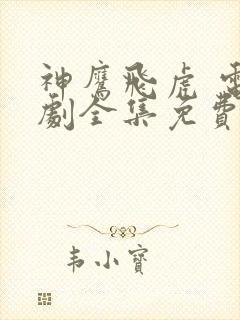 神鹰飛虎 電
劇全集免費
韦小寶